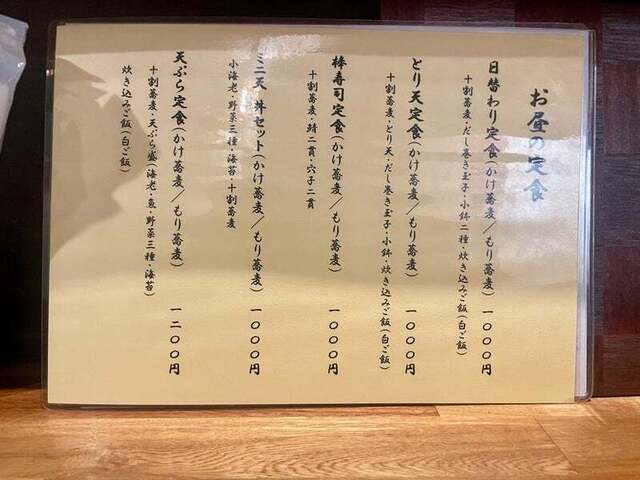 お昼の定食
日替わり定食(かけ蕎麦/もり蕎麦) 一〇〇〇円
十割蕎麦・だし巻き玉子・小鉢二種・炊き込みご飯(白ご飯)
とり天定食(かけ蕎麦/もり蕎麦) 一〇〇〇円
十割蕎麦・とり天・だし巻き玉子・小鉢・炊き込みご飯(白ご飯)
棒寿司定食(かけ蕎麦/もり蕎麦) 一〇〇〇円
十割蕎麦・鯖二貫・穴子二貫
ミニ天丼セット(かけ蕎麦/もり蕎麦) 一〇〇〇円
小海老・野菜三種・海苔・十割蕎麦
天ぷら定食(かけ蕎麦/もり蕎麦) 一二〇〇円
十割蕎麦・天ぷら盛(海老・魚・野菜三種・海苔)
炊き込みご飯(白ご飯)